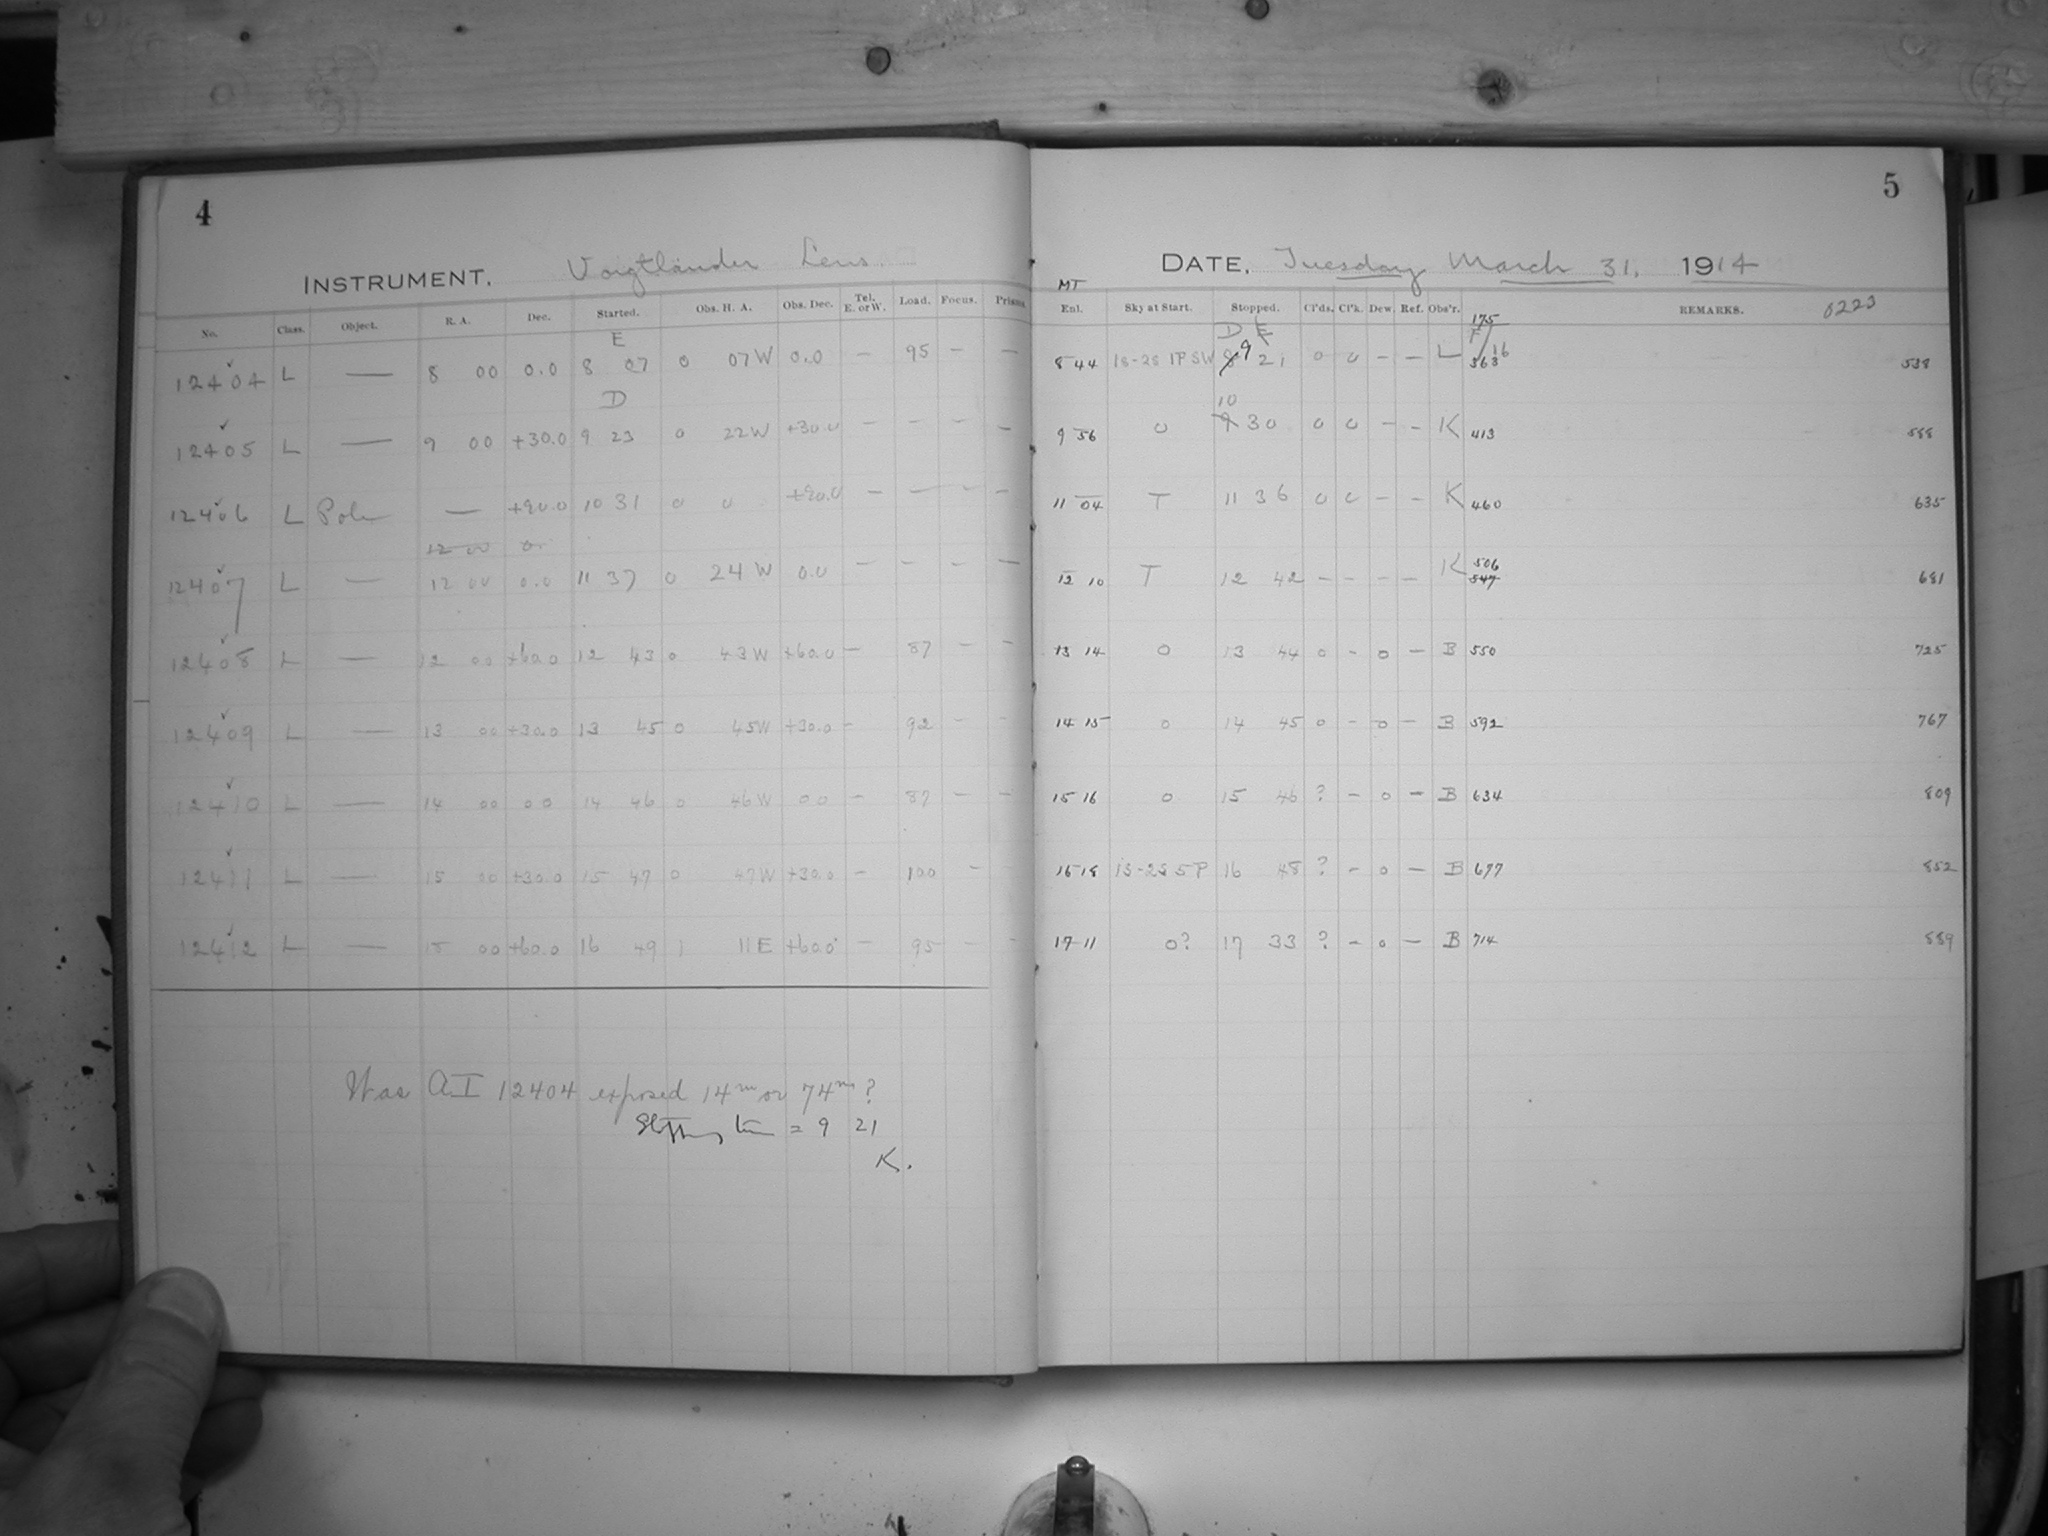 4
INSTRUMENT. Voigtländer Lens.
No. Class. Object. R. A. Dec. Started. Obs. H. A. Obs. Dec. Tel. E. or W. Load. Focus. Prisms.
E
12404 L — 8 00 0.0 8 07 0 07 W 0.0 — 95 — —
D
12405 L — 9 00 +30.0 9 23 0 22 W +30.0 — — — —
12406 L Pole — +90.0 10 31 0 0 +90.0 — — — —
12 00 0.
12407 L — 12 00 0.0 11 37 0 24 W 0.0 — — — —
12408 L — 12 00 +60.0 12 43 0 43 W +60.0 — 87 — —
12409 L — 13 00 +30.0 13 45 0 45 W +30.0 — 92 — —
12410 L — 14 00 0 0 14 46 0 46 W 0 0 — 87 — —
12411 L — 15 00 +30.0 15 47 0 47 W +30.0 — 100 —
12412 L — 15 00 +60.0 16 49 1 11 E +60.0 — 95 — —
Was A I 12404 exposed 14m or 74m?
Stopping time = 9 21
K.
5
DATE, Tuesday March 31, 1914
MT
Enl. Sky at Start. Stopped. Cl'ds. Cl'k. Dew. Ref. Obs'r. REMARKS. 0223
175
D E
8 44 1s-2s 1P SW 8 9 21 0 0 — — L 363 16 538
10
9 56 0 9 30 0 0 — — K 413 588
11 04 T 11 36 0 0 — — K 460 635
12 10 T 12 42 — — — — K 506 547 681
13 14 0 13 44 0 — 0 — B 550 725
14 15 0 14 45 0 — 0 — B 592 767
15 16 0 15 46 ? — 0 — B 634 809
16 18 1s-2s 5P 16 48 ? — 0 — B 677 852
17 11 0? 17 33 ? — 0 — B 714 889